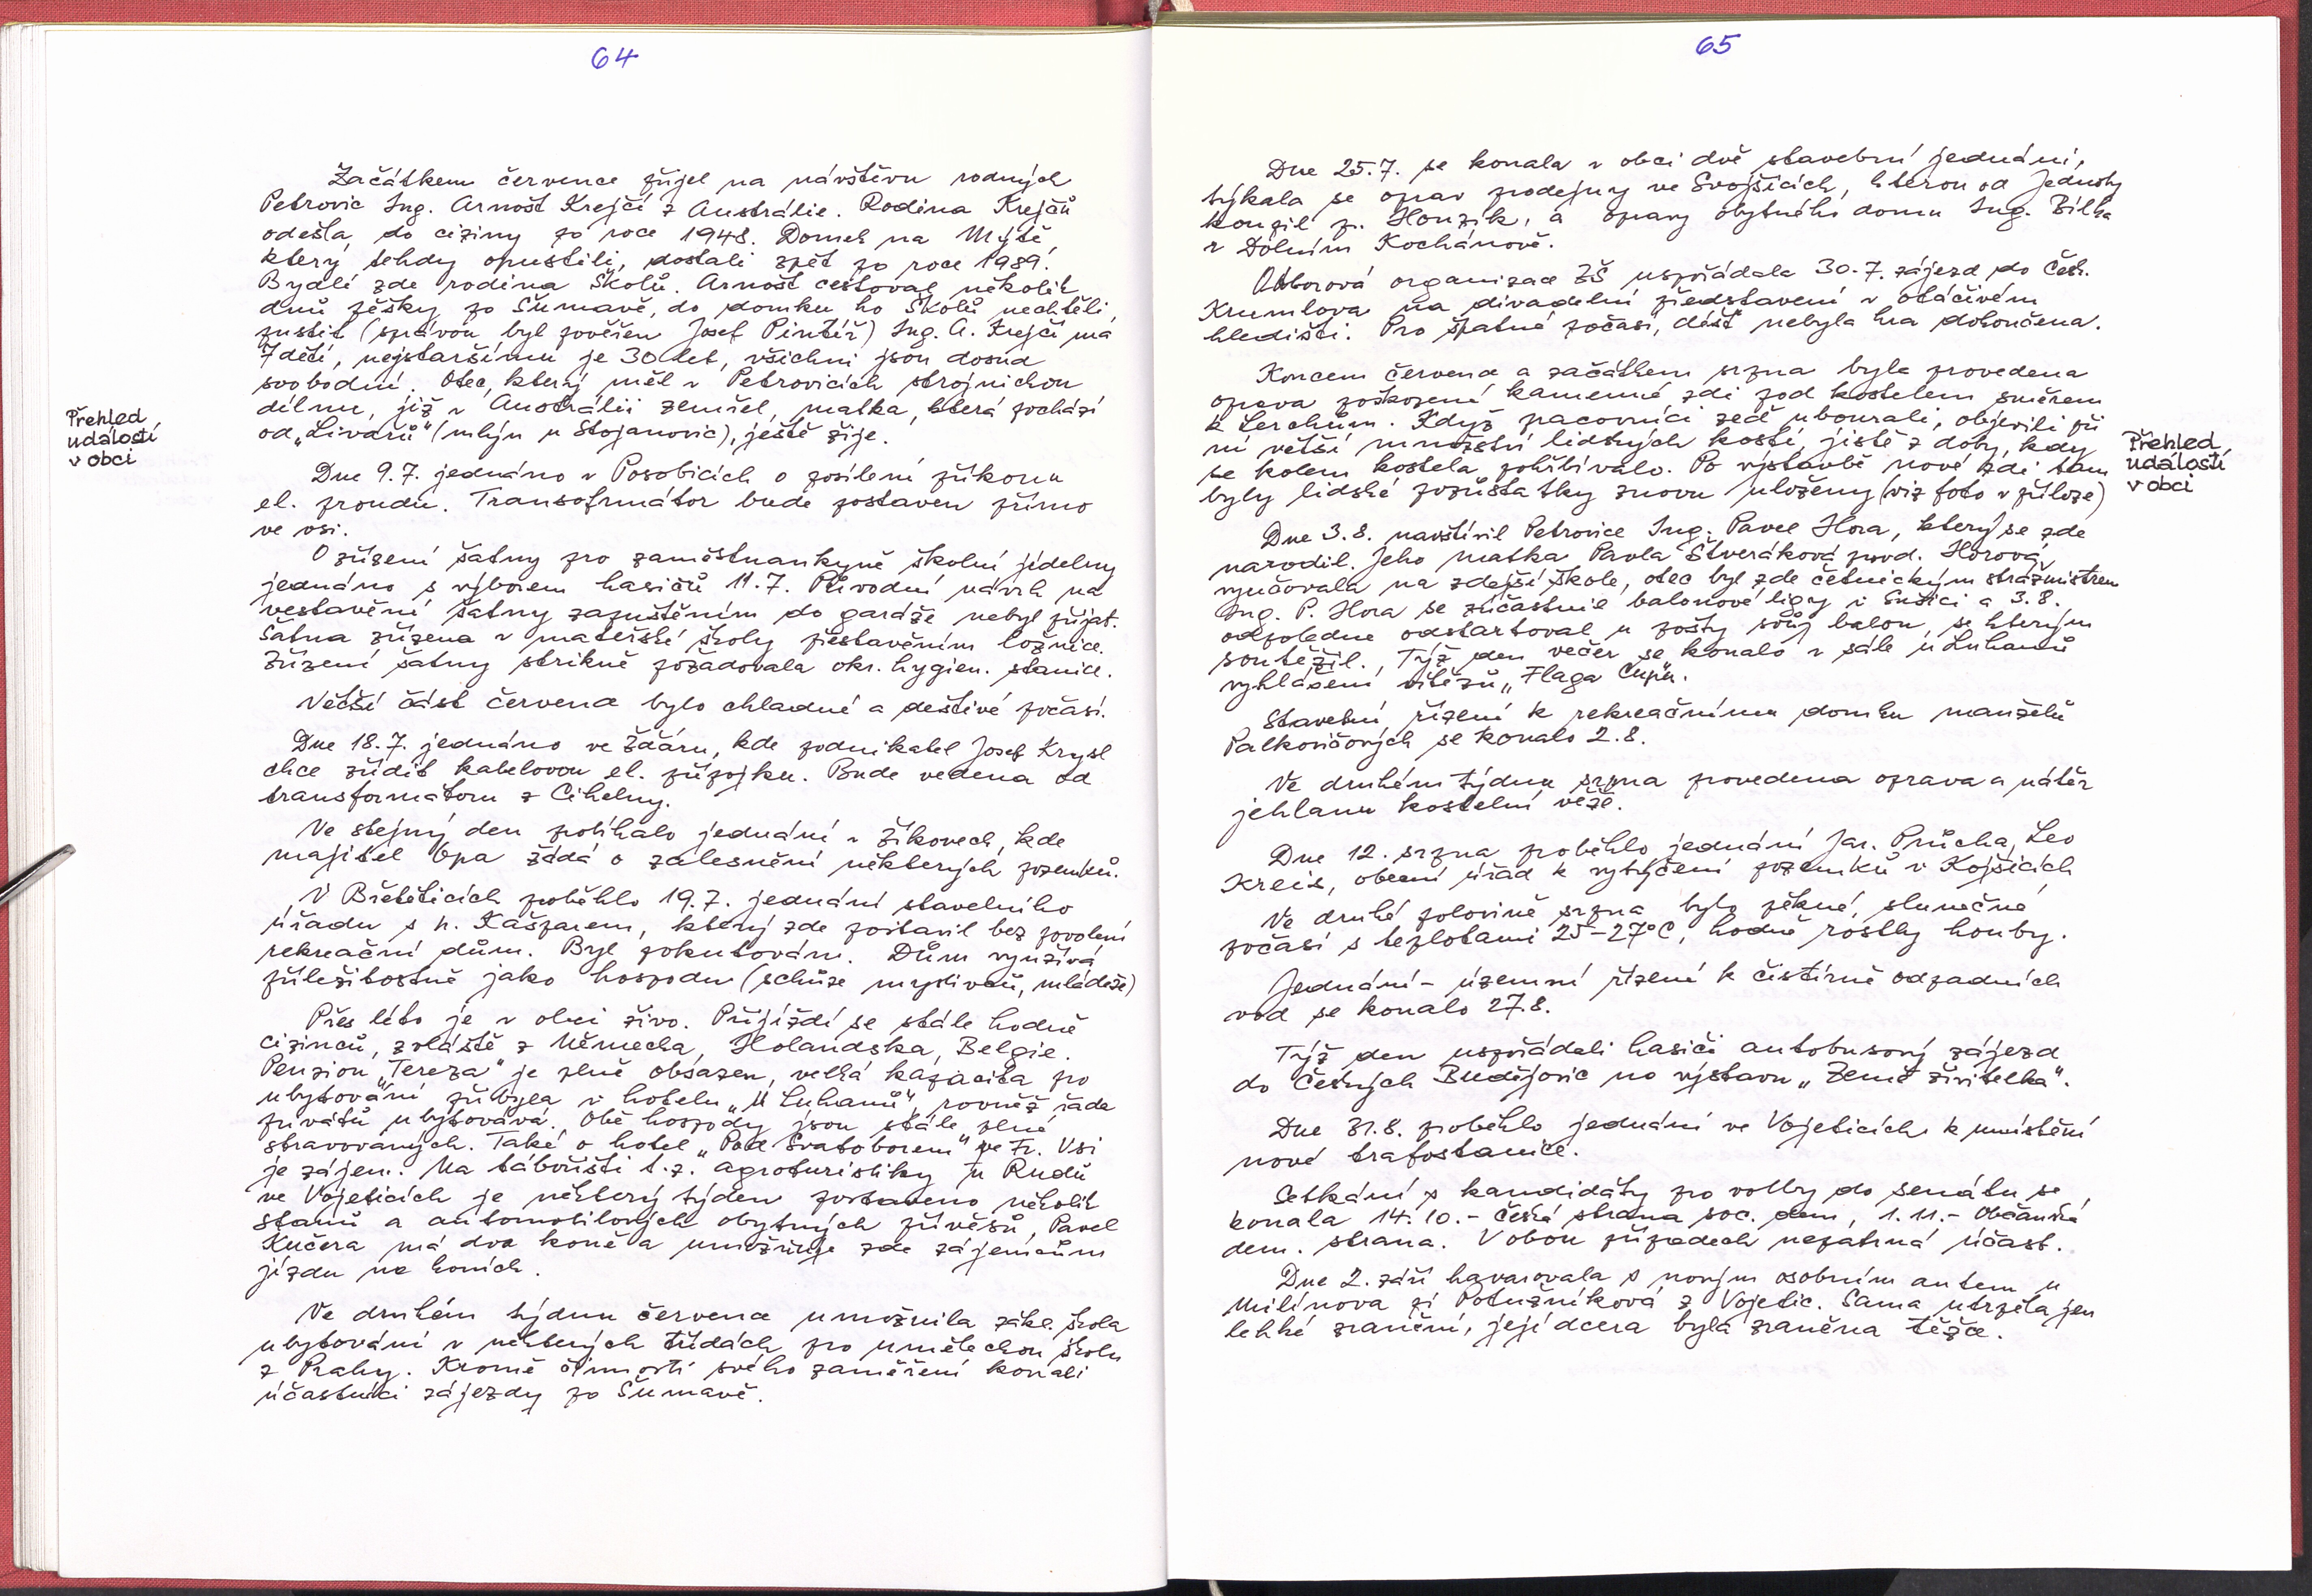 64
Začátkem července přijel na návštěvu rodných
Petrovic Ing. Arnošt Krejčí z Austrálie. Rodina Krejčů
odešla do ciziny po roce 1948. Domek na Mýtě,
který tehdy opustili, dostali zpět po roce 1989.
Bydlí zde rodina Školů. Arnošt cestoval několik
dnů pěšky po Šumavě, do domku ho Školů nechtěli
pustit (správou byl pověřen Josef Pintíř) Ing. A. Krejčí má
7 dětí, nejstaršímu je 30 let, všichni jsou dosud
svobodní. Otec, který měl v Petrovicích strojnickou
dílnu, již v Austrálii zemřel, matka, která pochází
od „Livarů" (mlýn u Stojanovic), ještě žije.
Přehled
událostí
v obci
Dne 9.7. jednáno v Posobicích o posílení příkonu
el. proudu. Transofrmátor bude postaven přímo
ve vsi.
O zřízení šatny pro zaměstnankyně školní jídelny
jednáno s výborem hasičů 11.7. Původní návrh na
vestavění šatny zapuštěním do garáže nebyl přijat.
Šatna zřízena v mateřské školy přestavěním ložnice.
Zřízení šatny striktně požadovala okr. hygien. stanice.
Větší část července bylo chladné a deštivé počasí.
Dne 18.7. jednáno ve Žďáru, kde podnikatel Josef Krysl
chce zřídit kabelovou el. přípojku. Bude vedena od
transformátoru z Cihelny.
Ve stejný den probíhalo jednání v Žikovech, kde
majitel Opa žádá o zalesnění některých pozemků.
V Břetěticích proběhlo 19.7. jednání stavebního
úřadu s p. Kašparem, který zde postavil bez povolení
rekreační dům. Byl pokutován. Dům využívá
příležitostně jako hospodu (schůze myslivců, mládeže)
Přes léto je v obci živo. Přijíždí se stále hodně
cizinců, zvláště z Německa, Holandska, Belgie.
Penzion „Tereza" je plně obsazen, velká kapacita po
ubytování přibyla v hotelu „U Luhanů", rovněž řada
privátů ubytovává. Obě hospody jsou stále plné
stravovaných. Také o hotel „Pod Svatoborem" ve Fr. Vsi
je zájem. Na tábořišti t.z. agroturistiky u Rudů
ve Vojeticích je některý týden postaveno několik
stanů a automobilových obytných přívěsů, Pavel
Kučera má dva koně a umožňuje zde zájemcům
jízdu na koních.
Ve druhém týdnu července umožnila zákl. škola
ubytování v některých třídách pro uměleckou školu
z Prahy. Kromě činností svého zaměření konali
účastníci zájezdy po Šumavě.
65
Dne 25.7. se konala v obci dvě stavební jednání,
týkala se oprav prodejny ve Svojšicích, kterou od Jednoty
koupil p. Honzík, a opravy obytného domu Ing. Bílka
v Dolním Kochánově.
Odborová organizace ZŠ uspořádala 30.7. zájezd do Česk.
Krumlova na divadelní představení v otáčivém
hledišti. Pro špatné počasí, déšť nebyla hra dokončena.
Koncem července a začátkem srpna byla provedena
oprava poškozené kamenné zdi pod kostelem směrem
k Lerchům. Když pracovníci zeď ubourali, objevili při
ní větší množství lidských kostí, jistě z doby, kdy
se kolem kostela pohřbívalo. Po výstavbě nové zdi tam
byly lidské pozůstatky znovu uloženy (viz foto v příloze)
Přehled
událostí
v obci
Dne 3.8. navštívil Petrovice Ing. Pavel Hora, který se zde
narodil. Jeho matka Pavla Štveráková provd. Horová
vyučovala na zdejší škole, otec byl zde četnickým strážmistrem
Ing. P. Hora se zúčastnil balonové ligy v Sušici a 3.8.
odpoledne odstartoval u pošty svůj balon, se kterým
soutěžil. Týž den večer se konalo v sále u Luhanů
vyhlášení vítězů „Flaga Cupu".
Stavební řízení k rekreačnímu domku manželů
Palkovičových se konalo 2.8.
Ve druhém týdnu srpna provedena oprava a nátěr
jehlanu kostelní věže.
Dne 12. srpna proběhlo jednání Jar. Průcha, Leo
Kreis, obecní úřad k vytýčení pozemků v Kojšicích
Ve druhé polovině srpna bylo pěkné, slunečné
počasí s teplotami 25-27°C, hodně rostly houby.
Jednání - územní řízení k čistírně odpadních
vod se konalo 27.8.
Týž den uspořádali hasiči autobusový zájezd
do Českých Budějovic na výstavu „Země živitelka".
Dne 31.8. proběhlo jednání ve Vojeticích k umístění
nové trafostanice.
Setkání s kandidáty pro volby do senátu se
konala 14.10.- Česká strana soc. dem, 1.11.- Občanská
dem. strana. V obou případech nepatrná účast.
Dne 2. září havarovala s novým osobním autem u
Milínova pí Potužníková z Vojetic. Sama utrpěla jen
lehké zranění, její dcera byla zraněna těžce.